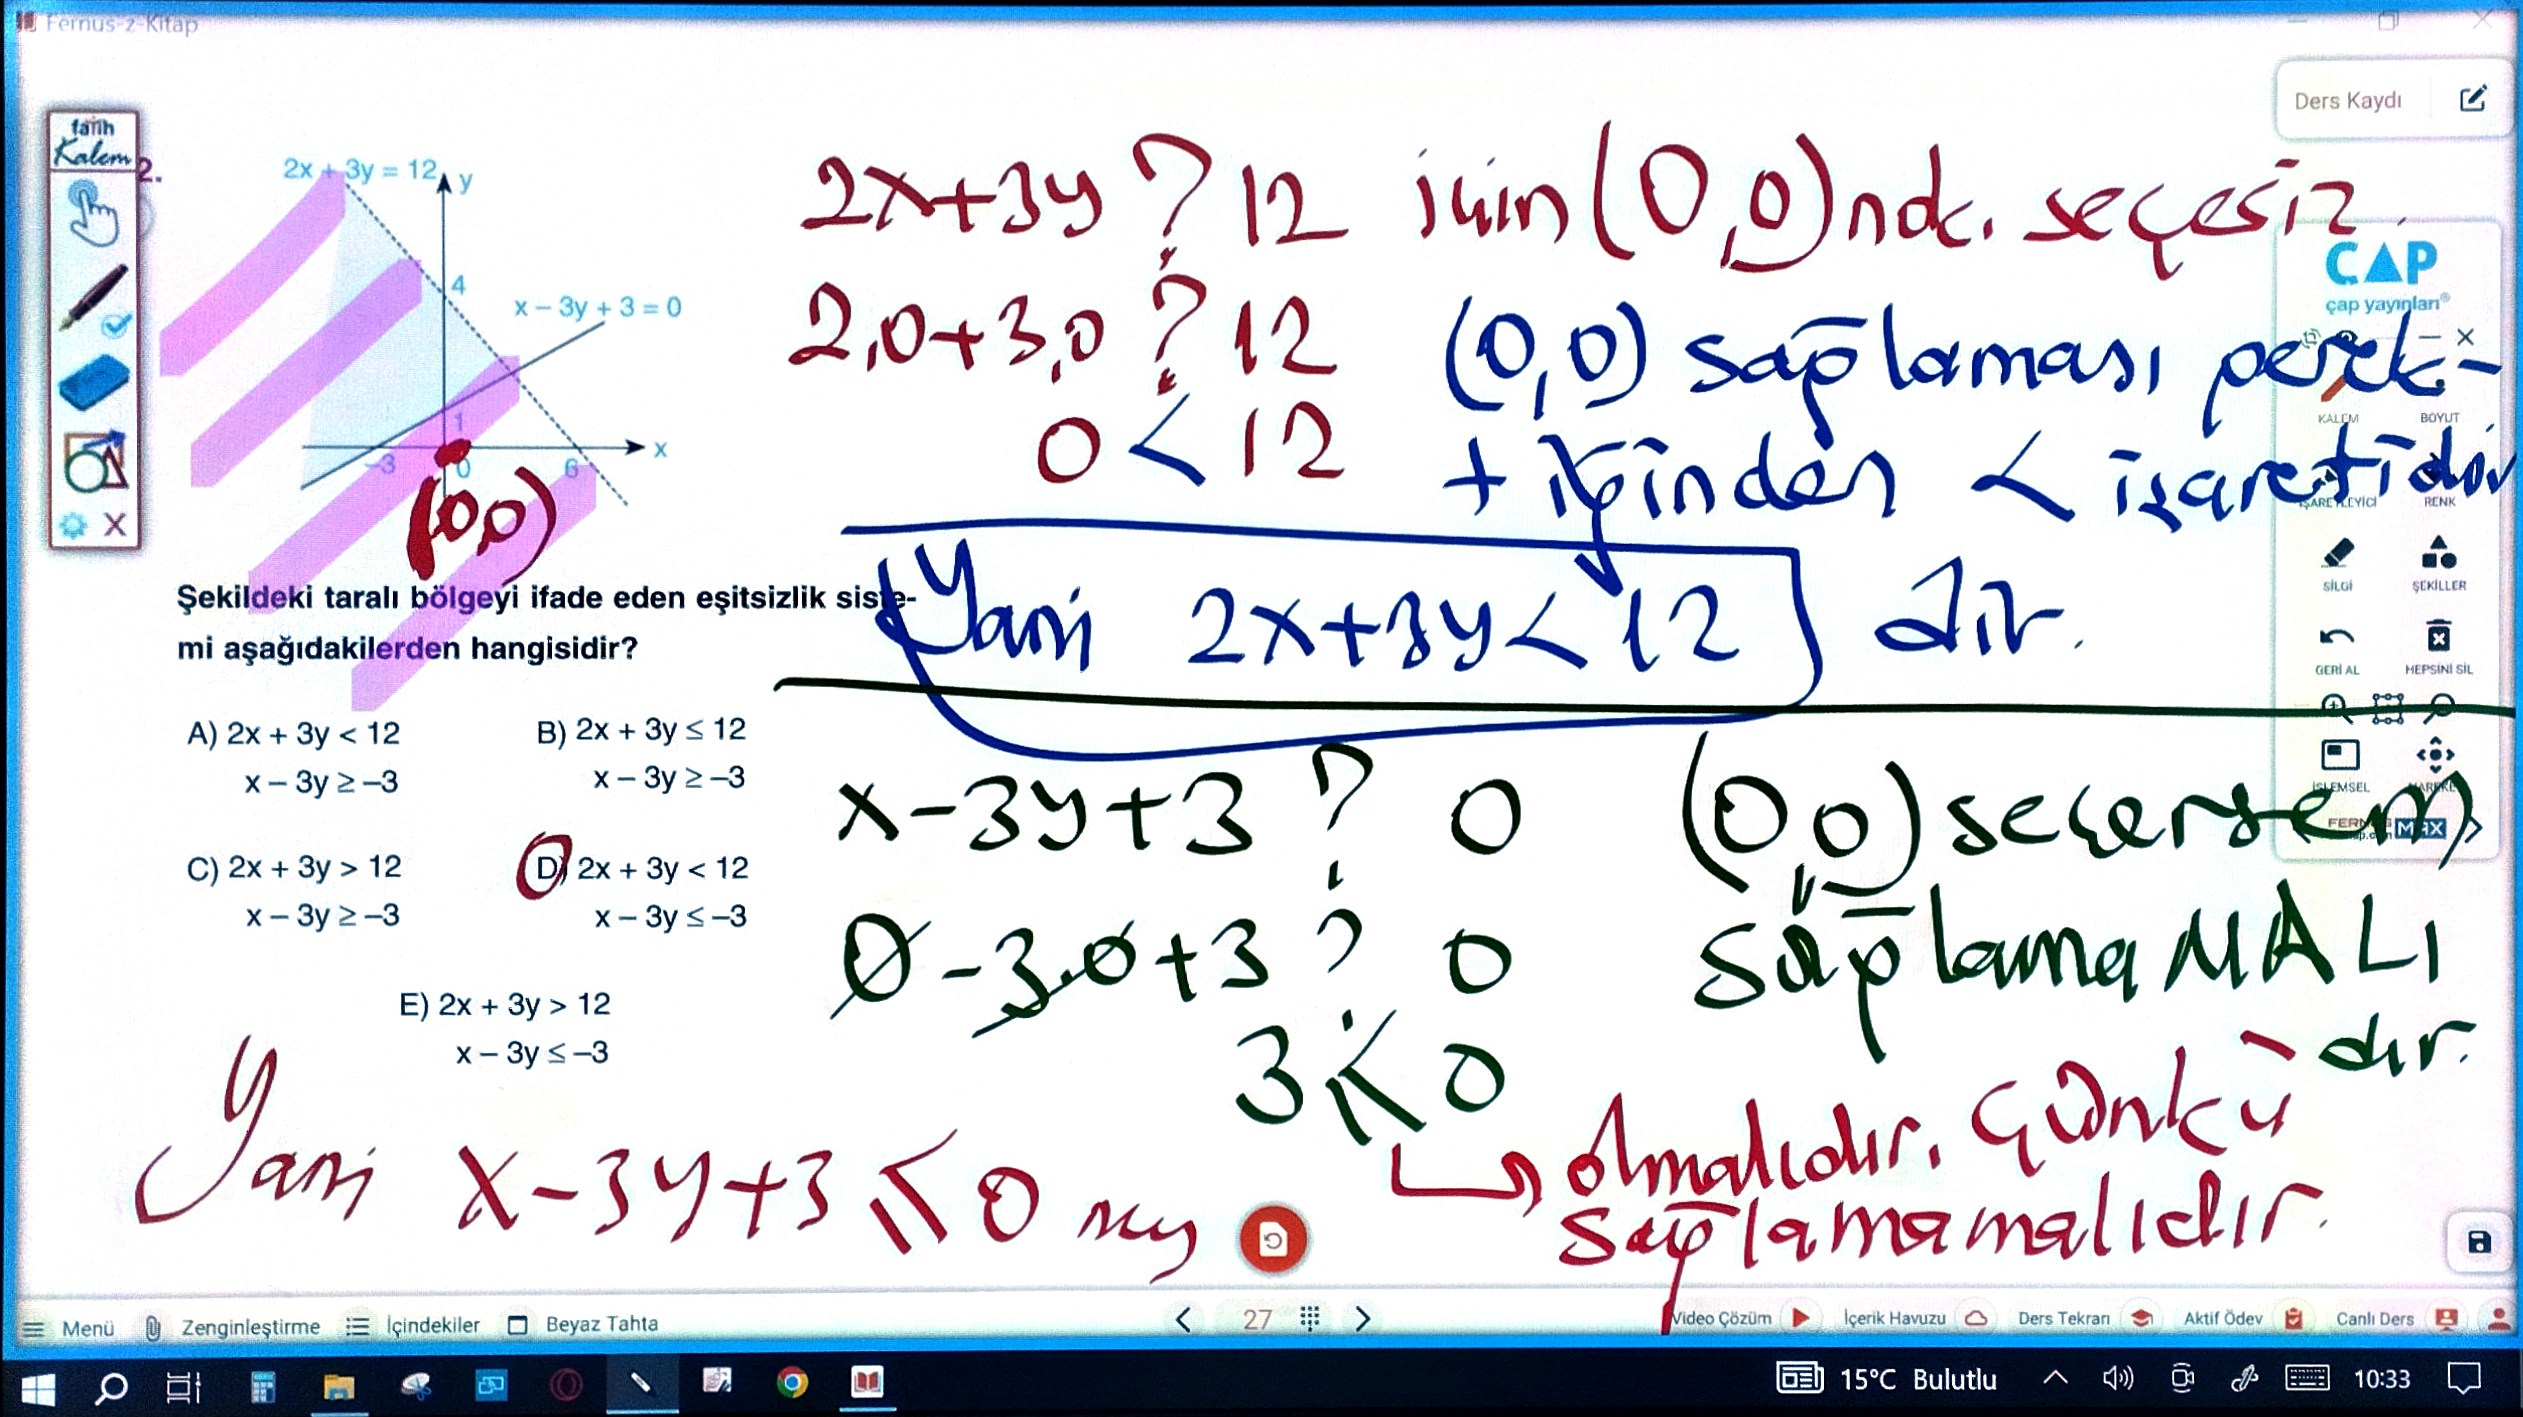 Fernus-z-Kitap
Ders Kaydı
fatih
Kalem
2.
2x + 3y = 12
y
4
x – 3y + 3 = 0
1
x
–3
0
6
(0,0)
Şekildeki taralı bölgeyi ifade eden eşitsizlik siste-
mi aşağıdakilerden hangisidir?
A) 2x + 3y < 12
x – 3y ≥ –3
B) 2x + 3y ≤ 12
x – 3y ≥ –3
C) 2x + 3y > 12
x – 3y ≥ –3
D) 2x + 3y < 12
x – 3y ≤ –3
E) 2x + 3y > 12
x – 3y ≤ –3
2x+3y ? 12 için (0,0) nok. seçesiz.
2.0+3.0 ? 12
0 < 12
(0,0) sağlaması gerek-
tiğinden < işaretidir
Yani 2x+3y<12 dir.
x-3y+3 ? 0 (0,0) seçersem
0-3.0+3 ? 0 sağlamaMALI
dır.
3 ≤ 0
olmalıdır. Çünkü
sağlamamalıdır.
Yani x-3y+3 ≤ 0
ÇAP
çap yayınları®
KALEM
BOYUT
RENK
SİLGİ
ŞEKİLLER
GERİ AL
HEPSİNİ SİL
İŞLEMSEL
MAX
Menü
Zenginleştirme
İçindekiler
Beyaz Tahta
27
Video Çözüm
İçerik Havuzu
Ders Tekrarı
Aktif Ödev
Canlı Ders
15°C Bulutlu
10:33